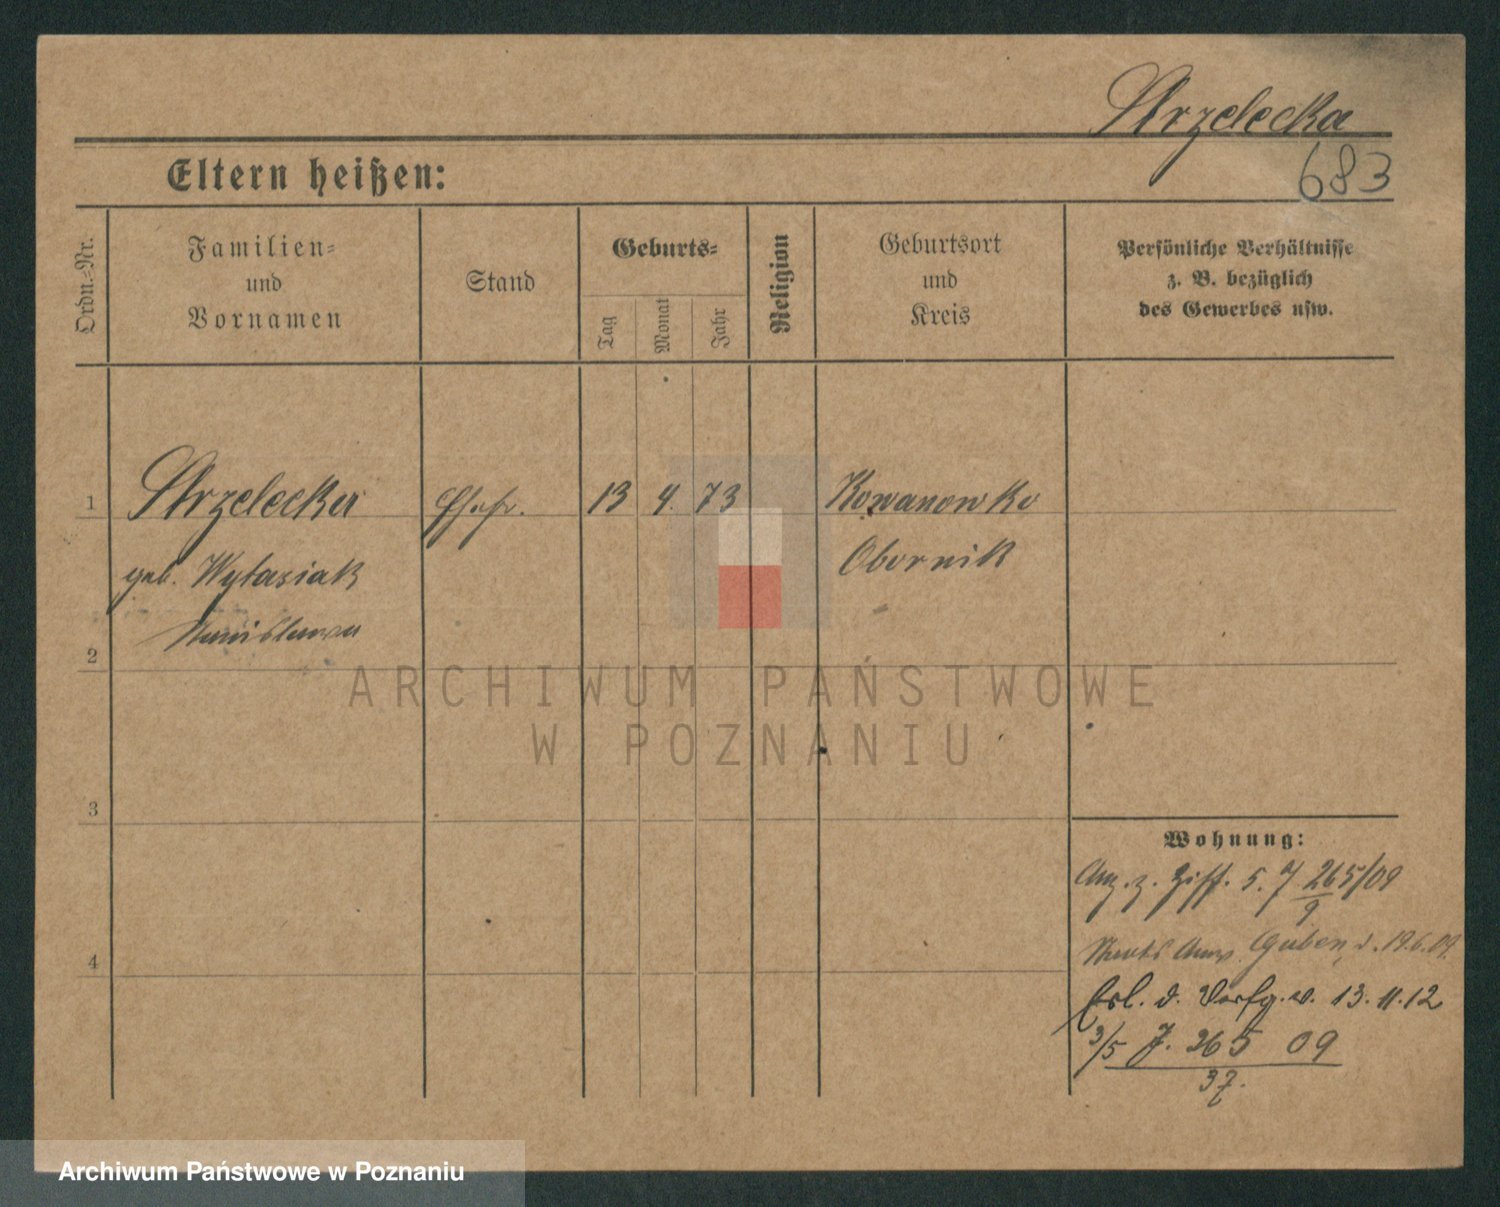 Strzelecka
683
Eltern heißen:
Ordn.-Nr.
Familien-
und
Vornamen
Stand
Geburts-
Tag
Monat
Jahr
Religion
Geburtsort
und
Kreis
Persönliche Verhältnisse
z. B. bezüglich
des Gewerbes usw.
1
Strzelecka Ehefr. 13 4. 73 Kowanowko
geb. Wytasiak Obornik
Stanislawa
2
3
4
Wohnung:
Anz. z. Ziff. 5. J 265/09
9
Guben v. 19.6.09.
Erl. d. Verfg. v. 13.11.12
3/5 J. 265 09
37.
ARCHIWUM PAŃSTWOWE
W POZNANIU
Archiwum Państwowe w Poznaniu